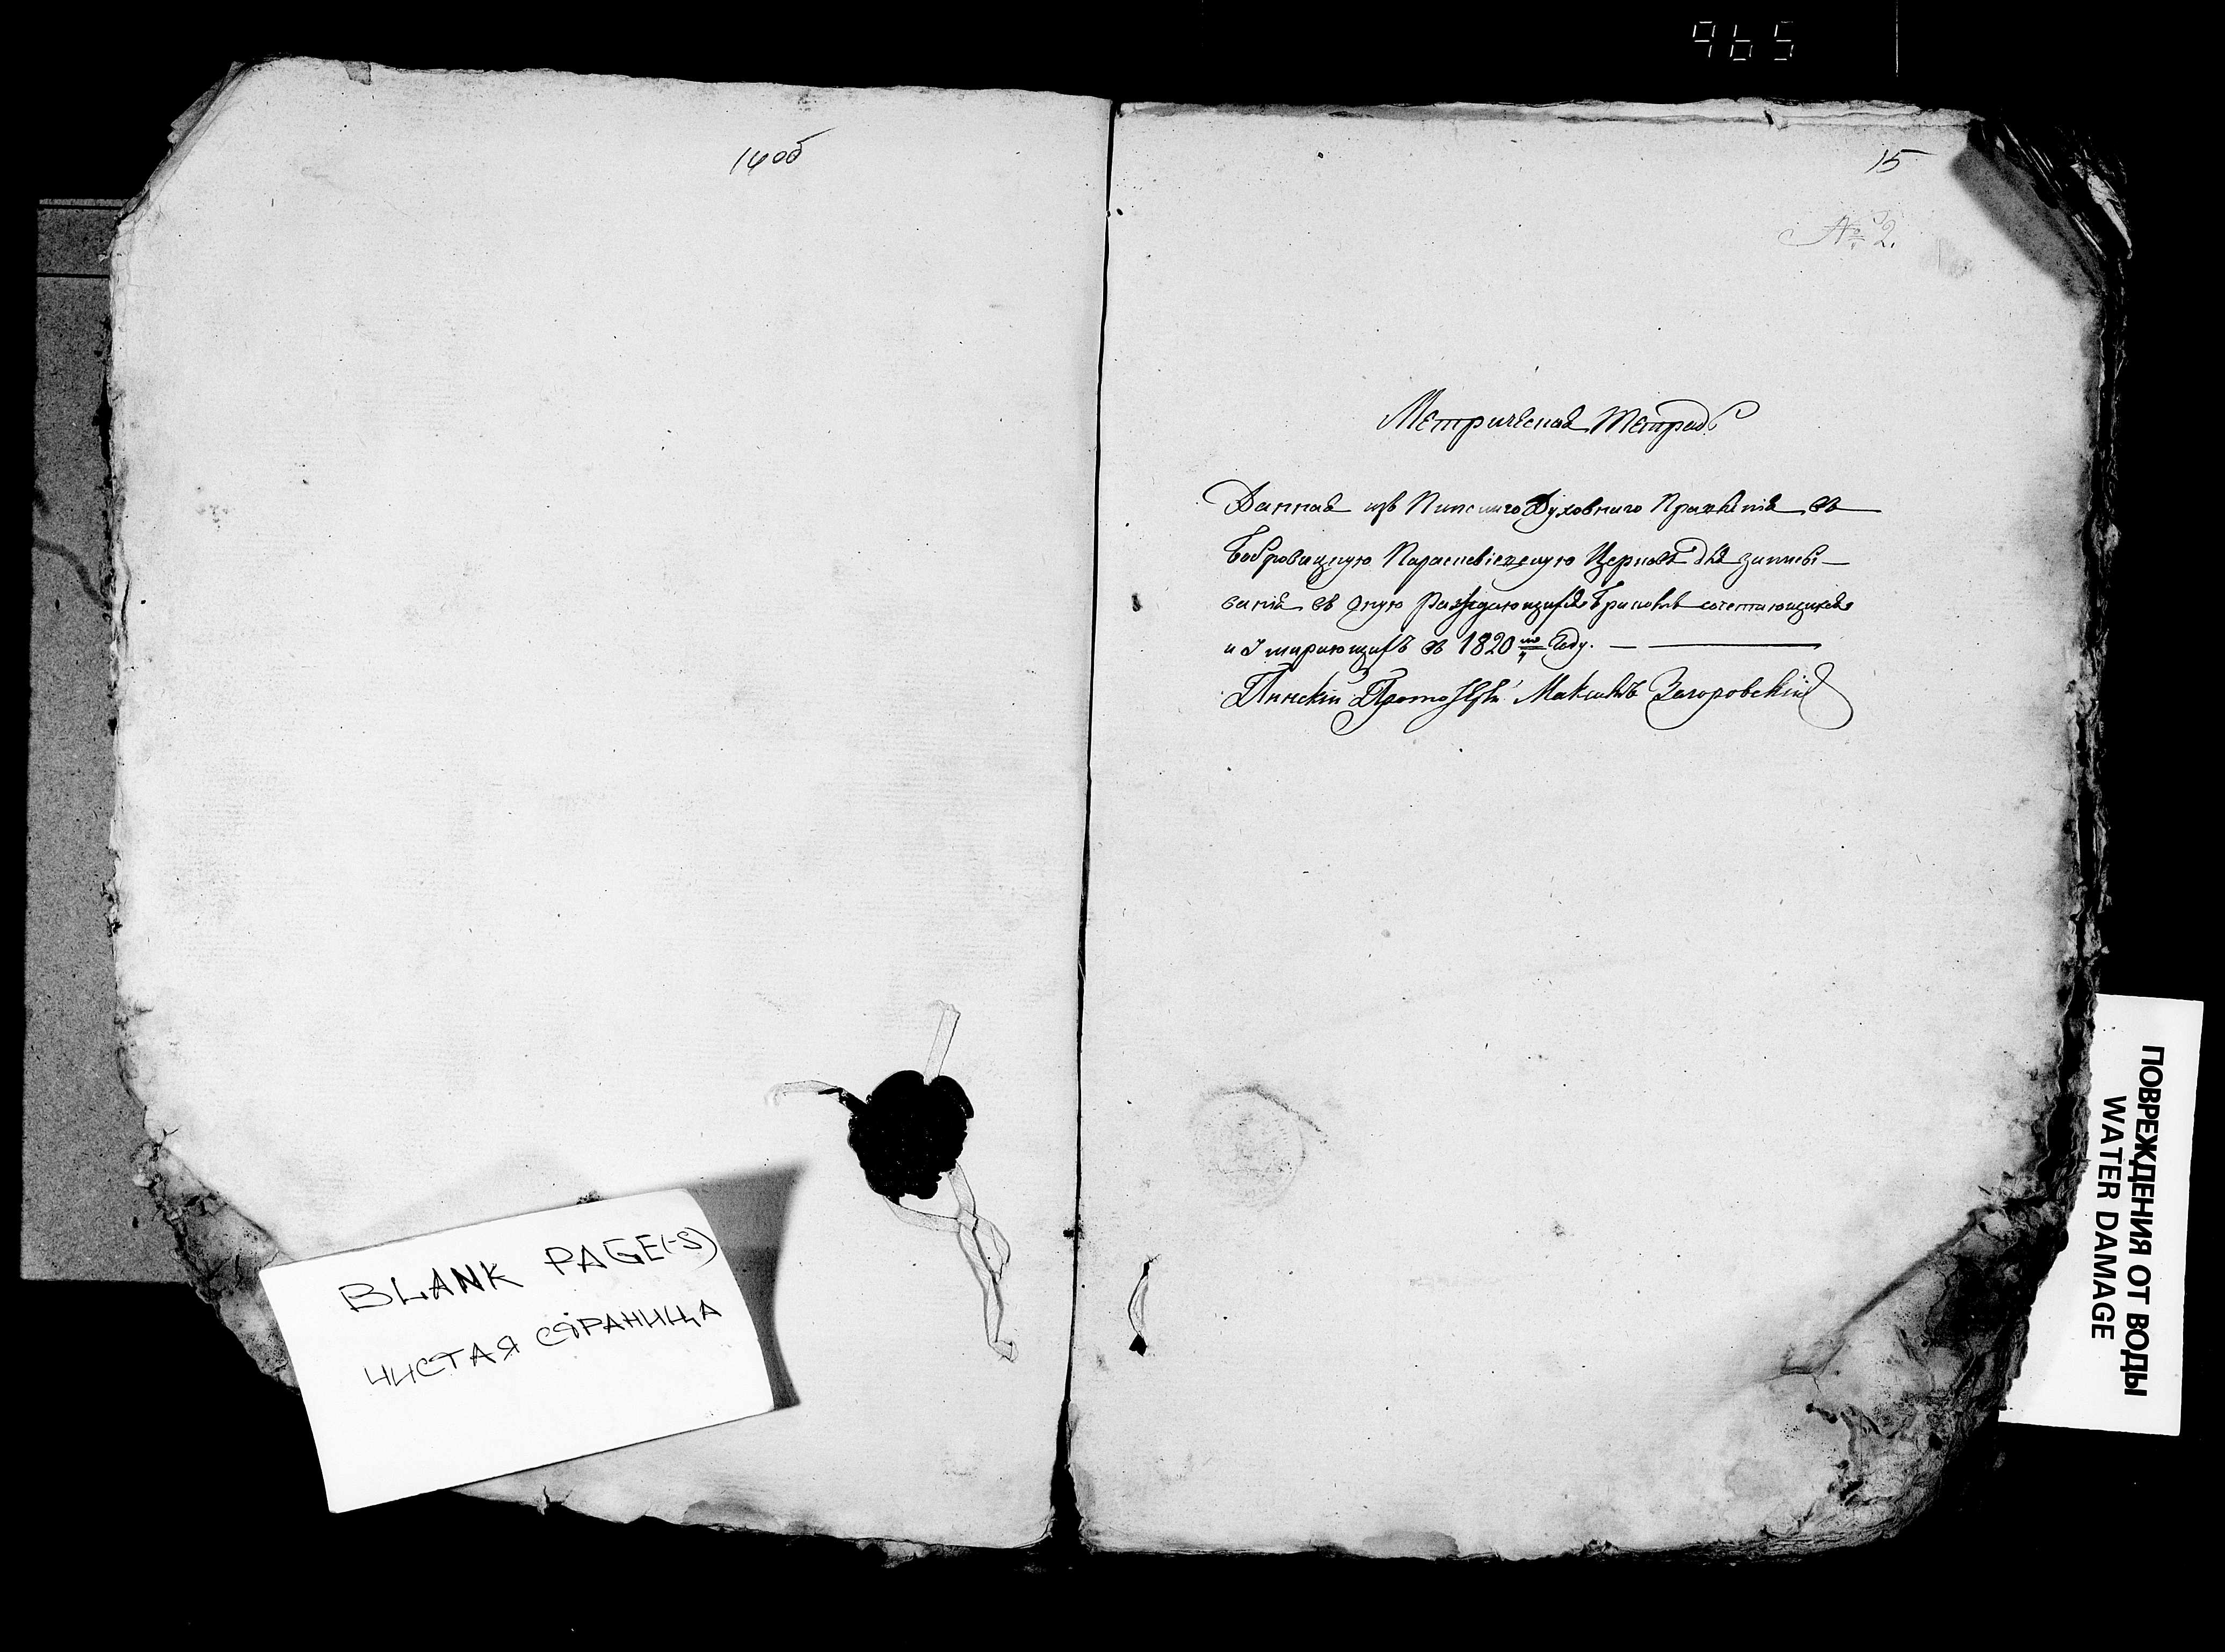 965
14об
15
№ 2.
Метрическая тетрадь
Данная изъ Пинскаго Духовнаго Правленія въ
Бобровицкую Параскевіевскую Церковь для записы-
ванія въ оную Раждающихся Бракомъ сочетающихся
и Умирающихъ въ 1820 мъ Году.
Пинскій Протоіерей Максимъ Загоровскій
BLANK PAGE(-S)
ЧИСТАЯ СТРАНИЦА
ПОВРЕЖДЕНИЯ ОТ ВОДЫ
WATER DAMAGE